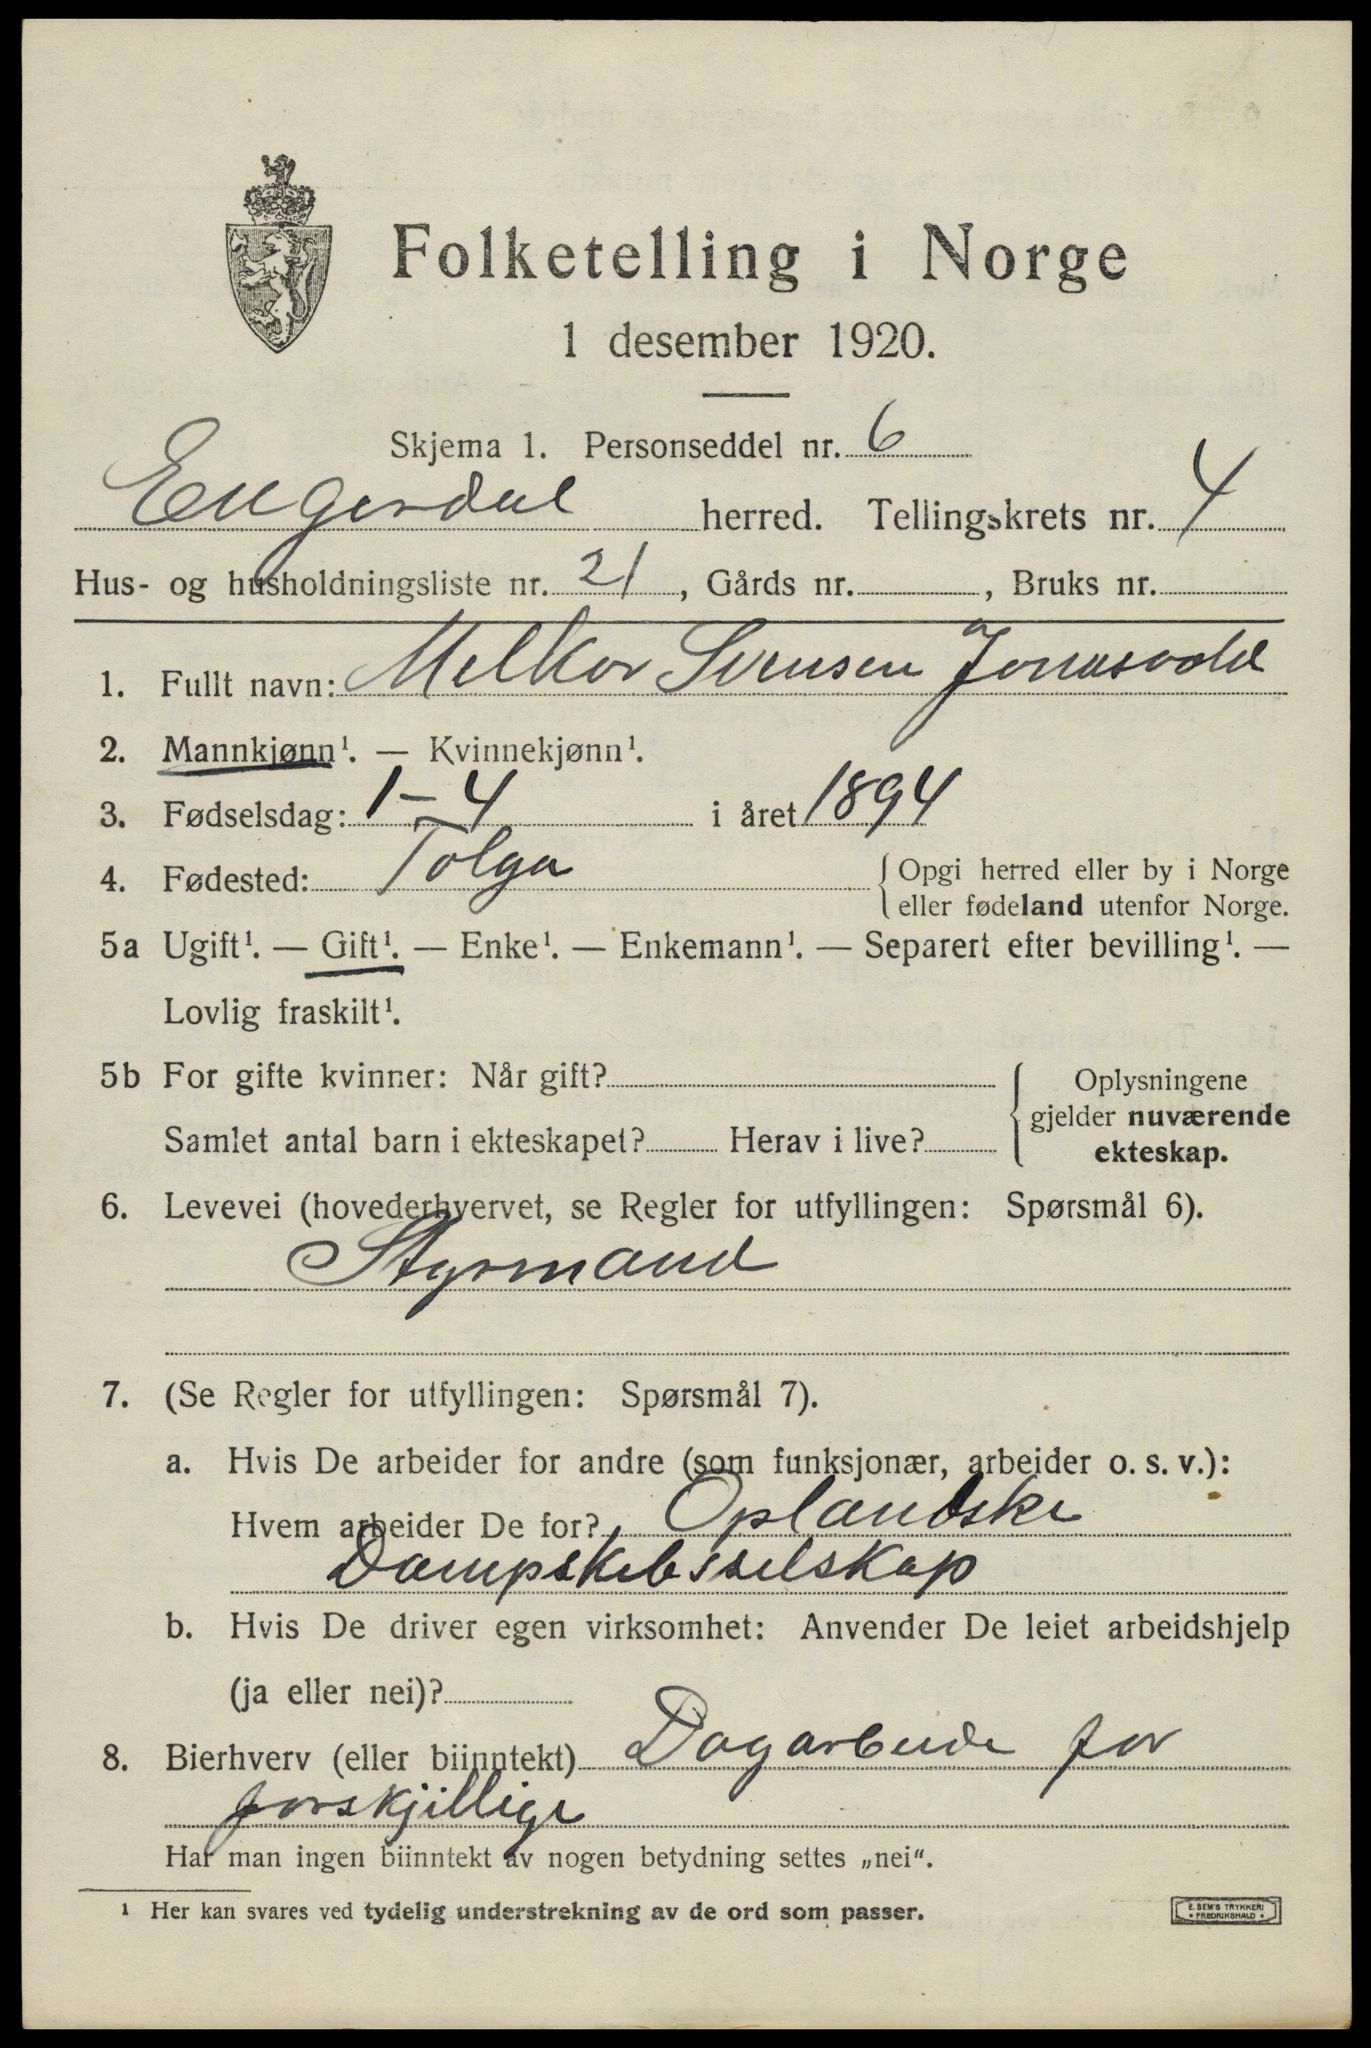 Folketelling i Norge
1 desember 1920.
Skjema 1. Personseddel nr. 6
Engerdal herred. Tellingskrets nr. 4
Hus- og husholdningsliste nr. 21, Gårds nr. , Bruks nr.
1. Fullt navn: Melkor Svensen Jonasvold
2. Mannkjønn¹. — Kvinnekjønn¹.
3. Fødselsdag: 1-4 i året 1894
4. Fødested: Tolga {Opgi herred eller by i Norge
eller fødeland utenfor Norge.
5a Ugift¹. — Gift¹. — Enke¹. — Enkemann¹. — Separert efter bevilling¹. —
Lovlig fraskilt¹.
5b For gifte kvinner: Når gift? {Oplysningene
gjelder nuværende
Samlet antal barn i ekteskapet? Herav i live? ekteskap.
6. Levevei (hovederhvervet, se Regler for utfyllingen: Spørsmål 6).
Styrmand
7. (Se Regler for utfyllingen: Spørsmål 7).
a. Hvis De arbeider for andre (som funksjonær, arbeider o. s. v.):
Hvem arbeider De for? Oplandske
Dampskibsselskap
b. Hvis De driver egen virksomhet: Anvender De leiet arbeidshjelp
(ja eller nei)?
8. Bierhverv (eller biinntekt) Dagarbeide for
forskjillige
Har man ingen biinntekt av nogen betydning settes „nei“.
¹ Her kan svares ved tydelig understrekning av de ord som passer.
E. SEM'S TRYKKERI
• FREDRIKSHALD •